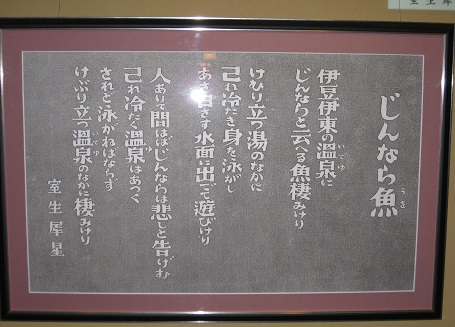 じんなら魚
うを
伊豆伊東の温泉に
いでゆ
じんならと云へる魚棲みけり
けむり立つ湯のなかに
己れ冷たき身を泳がし
あさ日さす水面に出でて遊びけり
人ありて問はばじんならは悲しと告げむ
己れ冷たく温泉はあつく
されど泳がねばならず
けぶり立つ温泉のなかに棲みけり
室生犀星
室生犀